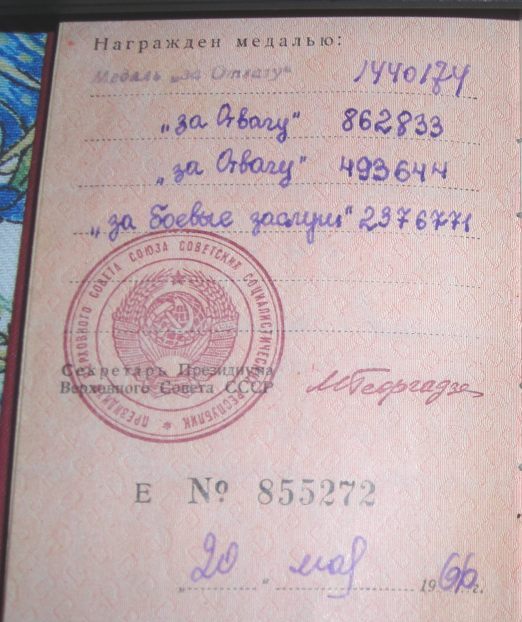 Награжден медалью:
Медаль „за Отвагу" 1440174
„за Отвагу" 862833
„за Отвагу" 493644
„за боевые заслуги" 2376771
ПРЕЗИДИУМ ВЕРХОВНОГО СОВЕТА СОЮЗА СОВЕТСКИХ СОЦИАЛИСТИЧЕСКИХ РЕСПУБЛИК
Секретарь Президиума
Верховного Совета СССР
МГеоргадзе
Е № 855272
„20" мая 1966 г.